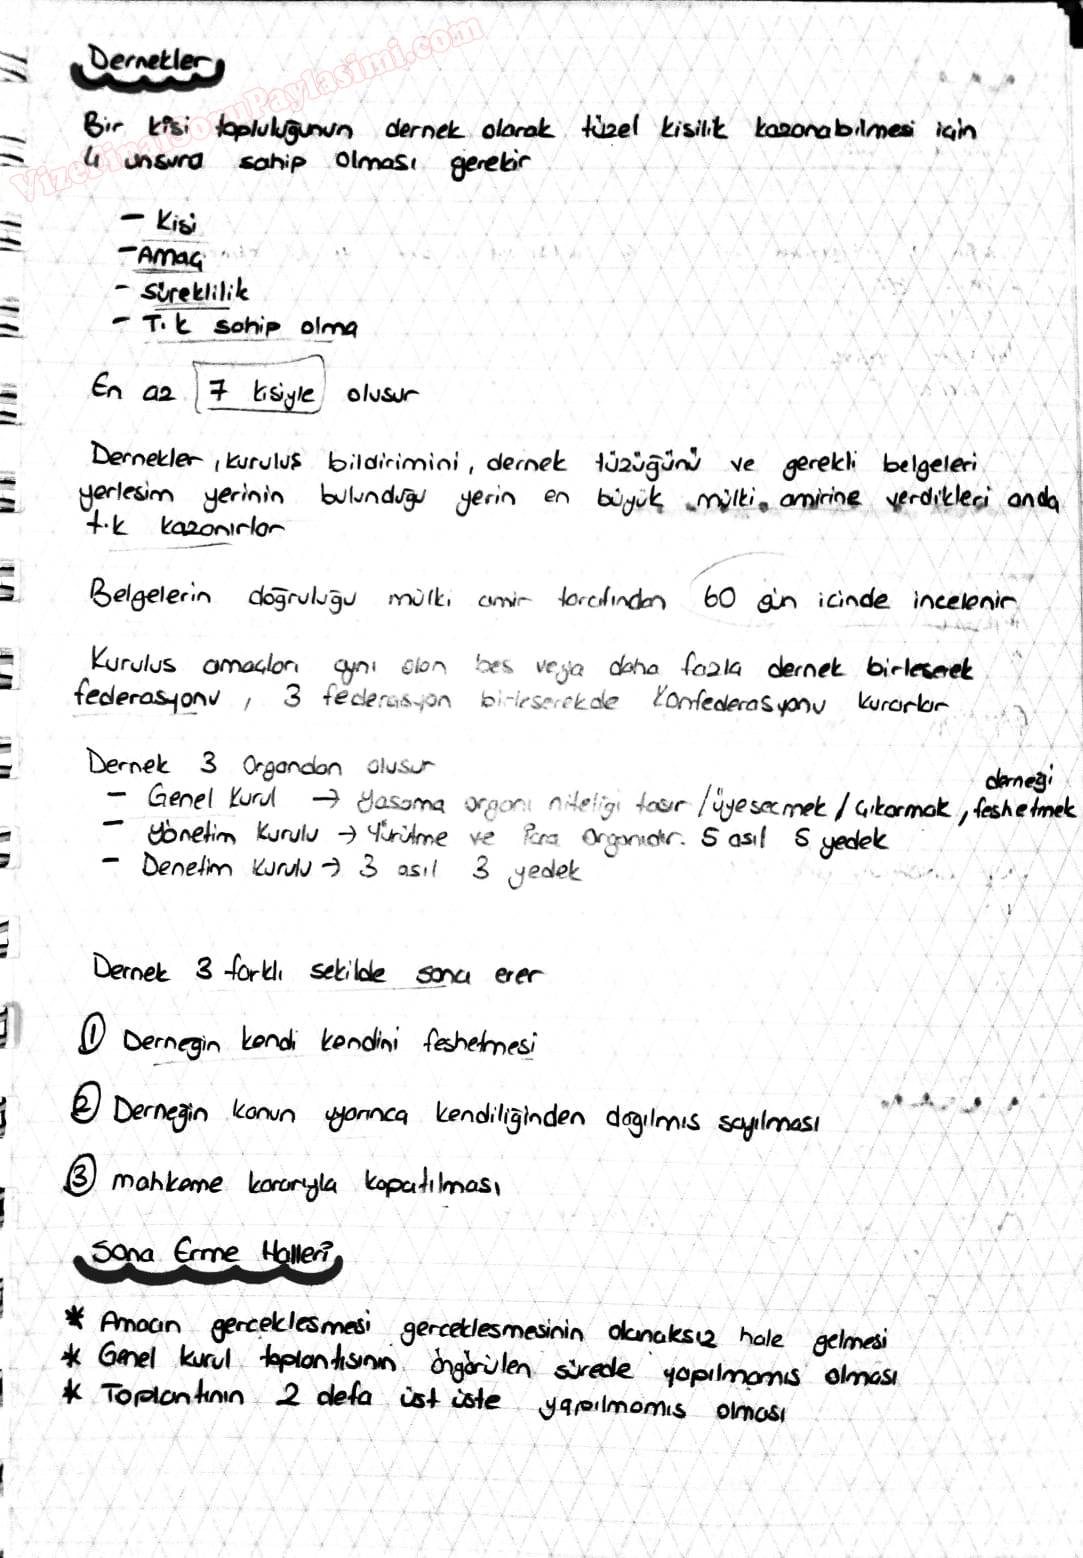 VizeFinalSoruPaylasimi.com
Dernekler
Bir kişi topluluğunun dernek olarak tüzel kisilik kazanabilmesi için
4 unsura sahip olması gerekir
- Kisi
- Amaç
- Süreklilik
- T.k sahip olma
En az 7 kisiyle olusur
Dernekler, kurulus bildirimini, dernek tüzüğünü ve gerekli belgeleri
yerlesim yerinin bulunduğu yerin en büyük mülki amirine verdikleri anda
t.k kazanırlar
Belgelerin doğruluğu mülki amir tarafından 60 gün icinde incelenir
Kurulus amaçları aynı olan bes veya daha fazla dernek birleserek
federasyonu, 3 federasyon birleserekde Konfederasyonu kurarlar
Dernek 3 Organdan olusur
- Genel Kurul → Yasama organı niteligi tasır / üye secmek / Çıkarmak, derneği feshetmek
- Yönetim Kurulu → Yürütme ve Para Organıdır. 5 asıl 5 yedek
- Denetim Kurulu → 3 asıl 3 yedek
Dernek 3 farklı sekilde sona erer
① Dernegin kendi kendini feshetmesi
② Derneğin kanun uyarınca kendiliğinden dagılmıs sayılması
③ mahkeme kararıyla kapatılması
Sona Erme Halleri
* Amacın gerceklesmesi gerceklesmesinin olanaksız hale gelmesi
* Genel kurul toplantısının öngörülen sürede yapılmamıs olması
* Toplantının 2 defa üst üste yapılmamıs olması